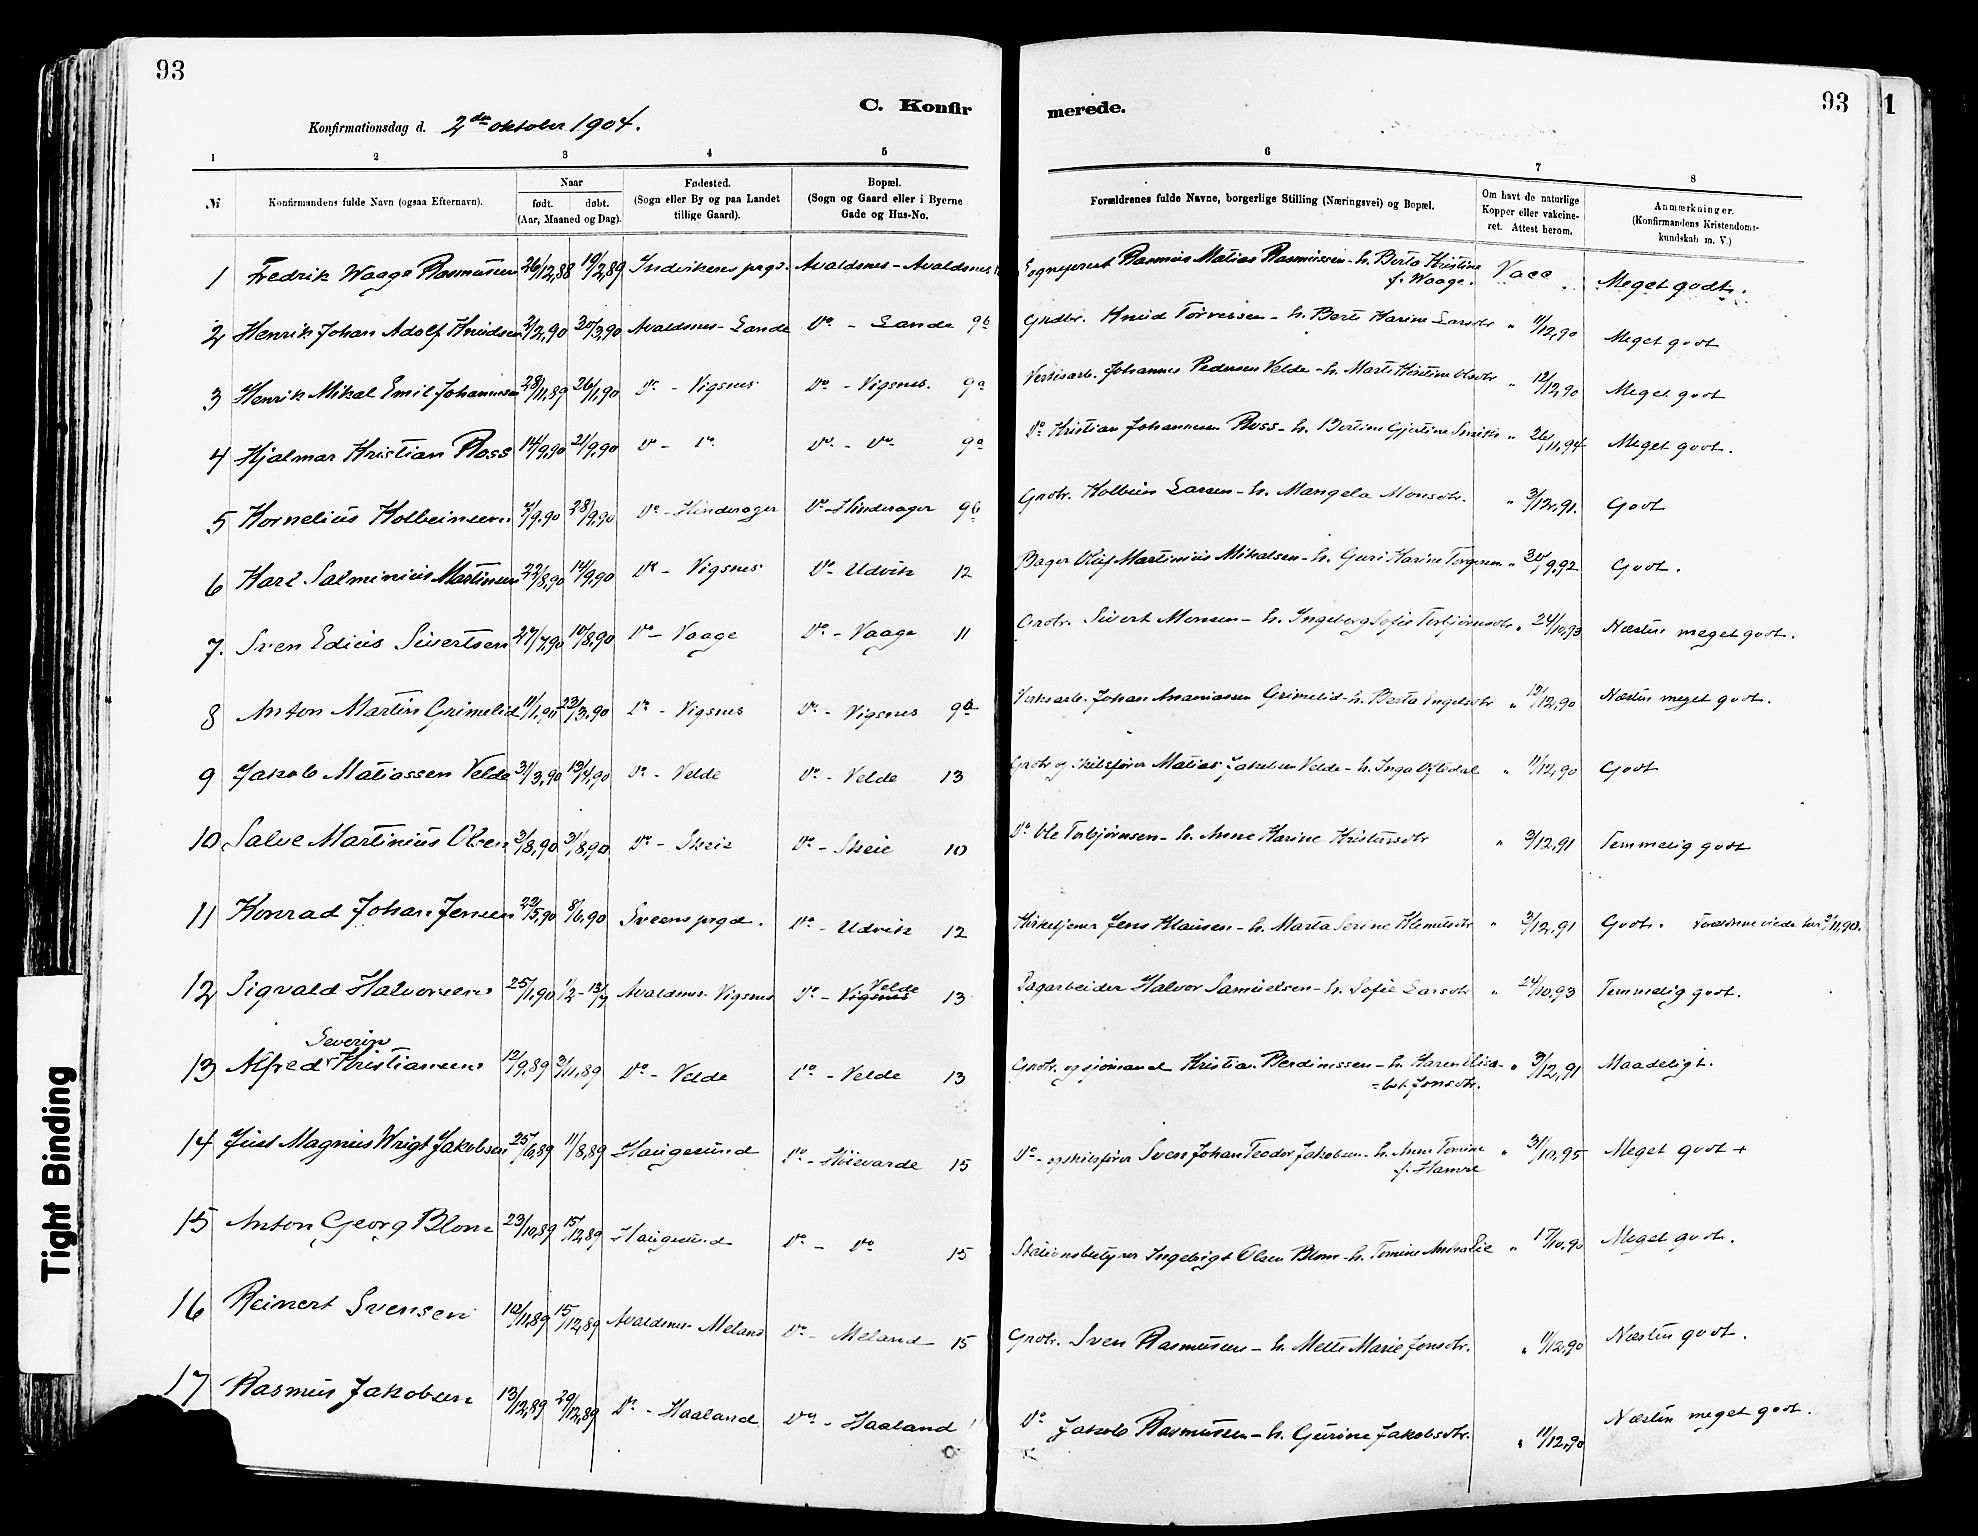 93
C. Konfir
merede.
93
1
Konfirmationsdag d. 2den oktober 1904.
1 2 3 4 5 6 7 8
№
Konfirmandens fulde Navn (ogsaa Efternavn).
Naar
født. døbt.
(Aar, Maaned og Dag).
Fødested.
(Sogn eller By og paa Landet
tillige Gaard).
Bopæl.
(Sogn og Gaard eller i Byerne
Gade og Hus-No.
Forældrenes fulde Navne, borgerlige Stilling (Næringsvei) og Bopæl.
Om havt de naturlige
Kopper eller vakcine-
ret. Attest herom.
Anmærkninger.
(Konfirmandens Kristendoms-
kundskab m. V.)
1 Fredrik Waage Rasmussen 26/12,88 19/2,89 Indvikens prgd. Avaldsnes - Avaldsnes Sogneprest Rasmus Matias Rasmussen - h. Berta Kristine
f. Waage. Vacc Meget godt.
2 Henrik Johan Adolf Knudsen 2/2,90 30/3,90 Avaldsnes - Sande Do - Sande 9b Grdbr. Knud Torressen - h. Berte Karine Larsdtr " 11/12,90 Meget godt
3 Henrik Mikal Emil Johannesen 28/11,89 26/1,90 Do - Vigsnes Do - Vigsnes. 9a Verksarb. Johannes Pedersen Velde - h. Marte Kristine Olsdtr " 12/12,90 Meget godt
4 Hjalmar Kristian Ross 14/9,90 21/9,90 Do - Do Do - Do 9a Do Kristian Johannesen Ross - h. Bertine Gjertine " 26/11,94 Meget godt.
5 Kornelius Kolbeinsen 2/9,90 28/9,90 Do - Hinderager Do - Hinderager 9b Grdbr. Kolbein Larsen - h. Mangela Monsdtr. " 3/12,91. Godt
6 Karl Salminius Martinsen 22/8,90 14/9,90 Do - Vigsnes Do Udvik 12 Bager Oluf Martinius Mikalsen - h. Guri Karine Torgersen " 30/9,92 Godt.
7. Sven Edius Sivertsen 27/7,90 10/8,90 Do - Vaage Do - Vaage 11 Grdbr. Sivert Monsen - h. Ingeborg Sofie Torbjørnsdtr " 24/10,93 Næsten meget godt.
8 Anton Martin Grimelid 11/1,90 23/3,90 Do - Vigsnes Do - Vigsnes 9a Verksarb. Johan Ananiassen Grimelid - h. Berta Engelsdtr " 12/12,90 Næsten meget godt.
9 Jakob Matiassen Velde 31/3,90 13/4,90 Do - Velde Do - Velde 13 Grdbr og skibsfører Matias Jakobsen Velde - h. Inga Oftedal " 11/12,90 Godt
10 Salve Martinius Olsen 3/8,90 31/8,90 Do - Skeie Do - Skeie 10 Do Ole Torbjørnsen - h. Anne Karine Kristensdtr " 3/12,91 Temmelig godt
11 Konrad Johan Jensen 22/5,90 8/6,90 Sveens prgd. Do - Udvik 12 Kirketjener Jens Klausen - h. Marta Serine Klemetsdtr " 3/12,91 Godt. Forældrene viede her 2/11,90.
12 Sigvald Halvorsen 25/1,90 1/2 - 13/4 Avaldsnes - Vigsnes Do - Vigsnes Velde 13 Dagarbeider Halvor Samuelsen - h. Sofie Larsdtr " 24/10,93 Temmelig godt.
13 Alfred Severin Kristiansen 12/9,89 3/11,89 Do - Velde Do - Velde 13 Grdbr. og sjømand Kristian Berdinessen - h. Karen Elisa-
=bet Jonsdtr. " 3/12,91 Maadeligt.
14 Just Magnus Wrigt Jakobsen 25/6,89 11/8,89 Haugesund Do - Høievarde 15 Do - og skibsfører Sven Johan Teodor Jakobsen - h. Anne Tomine
f. Hamre " 31/10,95 Meget godt +
15 Anton Georg Blom 23/10,89 15/12,89 Haugesund Do - Do 15 Stationsbetyrer Ingebrigt Olsen Blom - h. Tomine Amalie " 17/10,90 Meget godt.
16 Reinert Svensen 12/11,89 15/12,89 Avaldsnes - Meland Do - Meland 15 Grdbr. Sven Rasmussen - h. Mette Marie Jonsdtr. " 11/12,90 Næsten godt.
17 Rasmus Jakobsen 13/12,89 29/12,89 Do - Haaland Do - Haaland Do Jakob Rasmussen - h. Gurine Jakobsdtr. " 11/12,90 Næsten meget godt.
Tight Binding